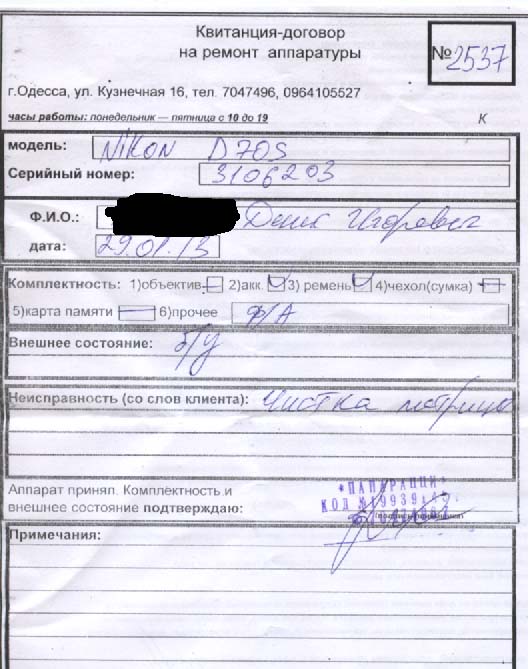 Квитанция-договор
на ремонт аппаратуры
№2537
г.Одесса, ул. Кузнечная 16, тел. 7047496, 0964105527
часы работы: понедельник — пятница с 10 до 19
К
модель: Nikon D70S
Серийный номер: 3106203
Ф.И.О.: Денис Игоревич
дата: 29.01.13
Комплектность: 1)объектив 2)акк. 3) ремень 4)чехол(сумка)
5)карта памяти 6)прочее Ф/А
Внешнее состояние: б/у
Неисправность (со слов клиента): Чистка матрицы
Аппарат принял. Комплектность и
внешнее состояние подтверждаю:
*ПАПАРАЦЦИ*
КОД №19939
Примечания: